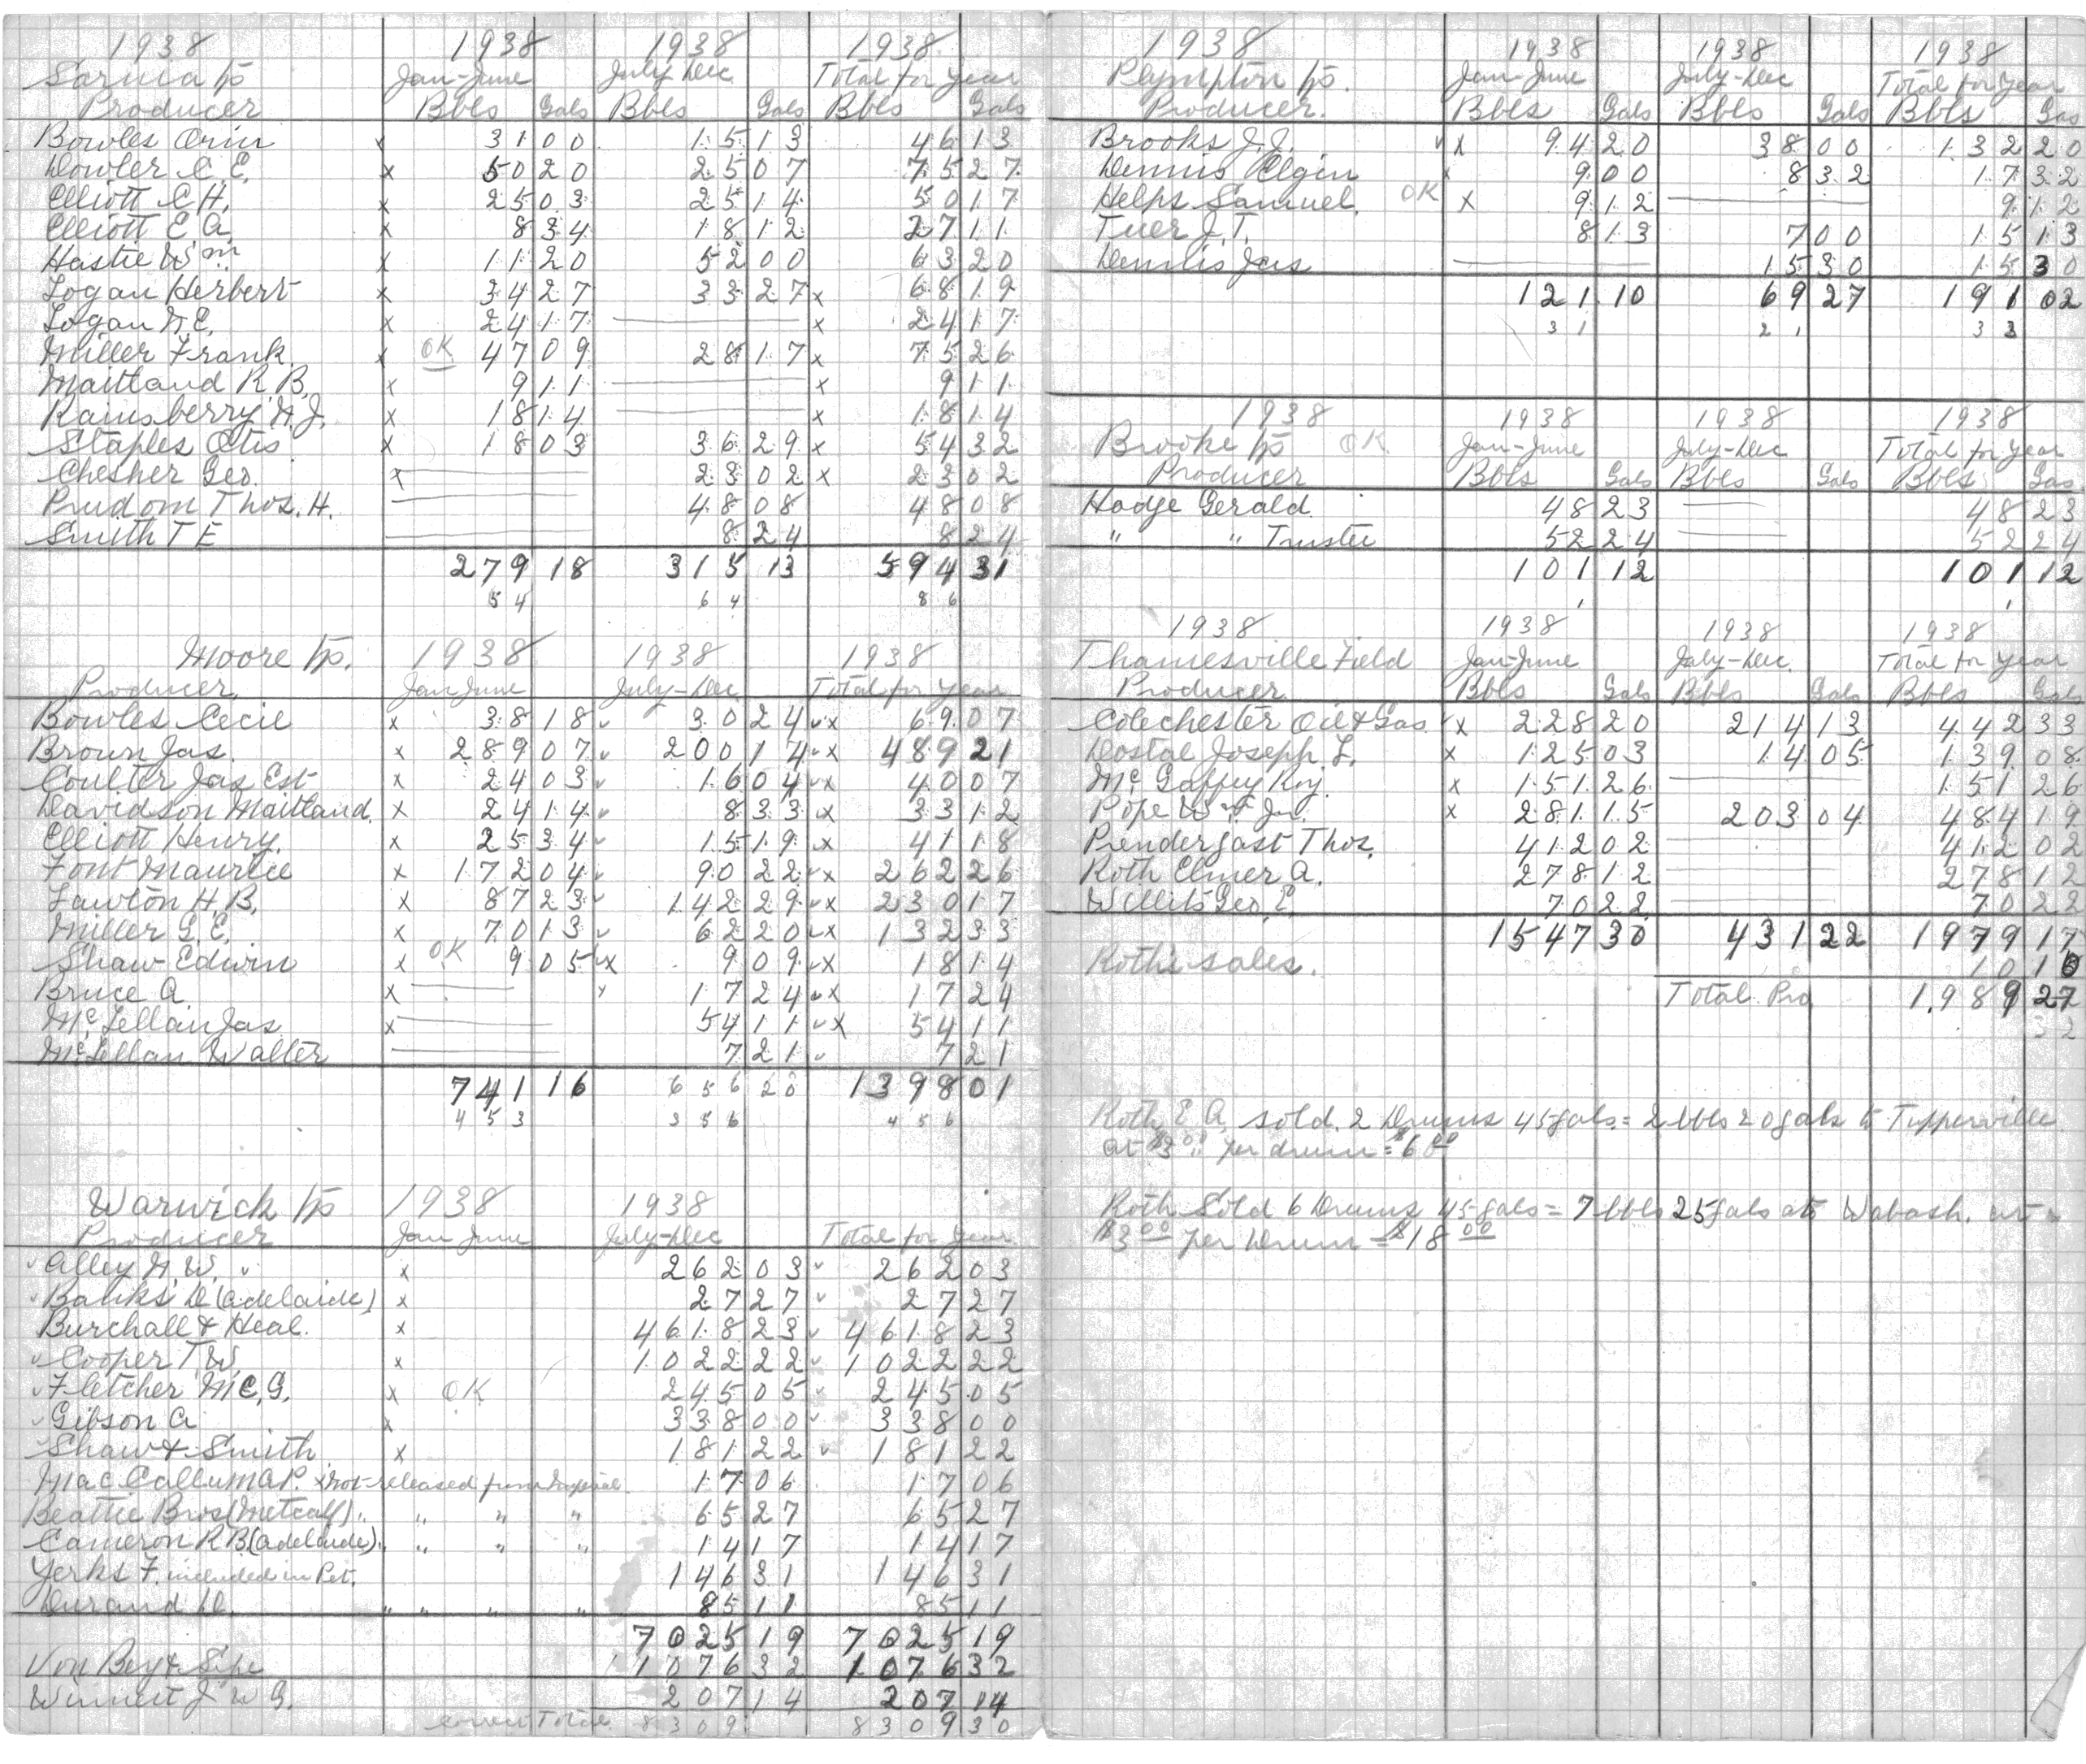 1938 1938 1938 1938
Sarnia Tp Jan-June July Dec. Total for year
Producer Bbls Gals Bbls Gals Bbls Gals
Bowles Orin x 31 00 15 13 46 13
Dowler C E. x 50 20 25 07 75 27
Elliott C H. x 25 03 25 14 50 17
Elliott E A. x 8 34 18 12 27 11
Hastie Wm x 11 20 52 00 63 20
Logan Herbert x 34 27 33 27 x 68 19
Logan N. E. x 24 17 — x 24 17
Miller Frank. x OK 47 09 28 17 x 75 26
Maitland R. B. x 9 11 — x 9 11
Rainsberry N. J. x 18 14 — x 18 14
Staples Otis x 18 03 36 29 x 54 32
Chesher Geo. x — 23 02 x 23 02
Prudom Thos. H. — 48 08 48 08
Smith T E — 8 24 8 24
279 18 315 13 594 31
54 64 86
Moore Tp. 1938 1938 1938
Producer. Jan June July-Dec Total for year
Bowles Cecil x 38 18 ✓ 30 24 ✓x 69 07
Brown Jas. x 289 07 ✓ 200 14 ✓x 489 21
Coulter Jas Est x 24 03 ✓ 16 04 ✓x 40 07
Davidson Maitland. x 24 14 ✓ 8 33 ✓x 33 12
Elliott Henry. x 25 34 ✓ 15 19 ✓x 41 18
Font Maurice x 172 04 ✓ 90 22 ✓x 262 26
Lawton H. B. x 87 23 ✓ 142 29 ✓x 230 17
Miller G. E. x 70 13 ✓ 62 20 ✓x 132 33
Shaw Edwin x OK 9 05 ✓x 9 09 ✓x 18 14
Bruce A. x — x 17 24 ✓x 17 24
McLellan Jas x — 54 11 ✓x 54 11
McLellan Walter — 7 21 ✓ 7 21
741 16 656 20 1398 01
453 356 456
Warwick Tp 1938 1938
Producer Jan June July-Dec Total for year
✓ Alley N. W. ✓ x 262 03 ✓ 262 03
✓ Banks D (Adelaide) x 27 27 ✓ 27 27
Burchall & Heal. x 4618 23 ✓ 4618 23
✓ Cooper T. W. x 1022 22 ✓ 1022 22
✓ Fletcher McG. x OK 245 05 ✓ 245 05
✓ Gibson A x 338 00 ✓ 338 00
✓ Shaw & Smith x 181 22 ✓ 181 22
MacCallum A P. x not released from Imperial 17 06 17 06
Beattie Bros (Metcalf) " " " " 65 27 65 27
Cameron R B (Adelaide) " " " " 14 17 14 17
Yerks F. included in Pet. 146 31 146 31
Durand D. " " " " 85 11 85 11
7025 19 7025 19
Von Bey & Sipe 1076 32 1076 32
Winnett J W G. 207 14 207 14
correct Total 8309 8309 30
1938 1938 1938 1938
Plympton Tp. Jan-June July-Dec Total for year
Producer. Bbls Gals Bbls Gals Bbls Gas
Brooks J. J. ✓x 94 20 38 00 132 20
Dennis Elgin x 9 00 8 32 17 32
Helps Samuel. OK x 9 12 — 9 12
Tuer J. T. 8 13 7 00 15 13
Dennis Jas — 15 30 15 30
121 10 69 27 191 02
31 21 33
1938 1938 1938 1938
Brooke Tp OK Jan-June July-Dec Total for year
Producer Bbls Gals Bbls Gals Bbls Gas
Hodge Gerald. 48 23 — 48 23
" " Trustee 52 24 — 52 24
101 12 101 12
1 1
1938 1938 1938 1938
Thamesville Field Jan-June July-Dec. Total for year
Producer Bbls Gals Bbls Gals Bbls Gals
Colechester Oil & Gas ✓x 228 20 214 13 442 33
Dostal Joseph L. x 125 03 14 05 139 08
McGaffey Roy. x 151 26 — 151 26
Pope Wm Jr. x 281 15 203 04 484 19
Prendergast Thos. 412 02 — 412 02
Roth Elmer A. 278 12 — 278 12
Willits Geo. E. 70 22 — 70 22
1547 30 431 22 1979 17
Roths sales. 10 10
Total Pro 1989 27
32
Roth E A. sold. 2 Drums 45 gals. = 2 bbls 20 gals to Tupperville
at $3.00 per drum = $6.00
Roth Sold 6 Drums 45 gals = 7 bbls 25 gals at Wabash. at
$3.00 per Drum = $18.00